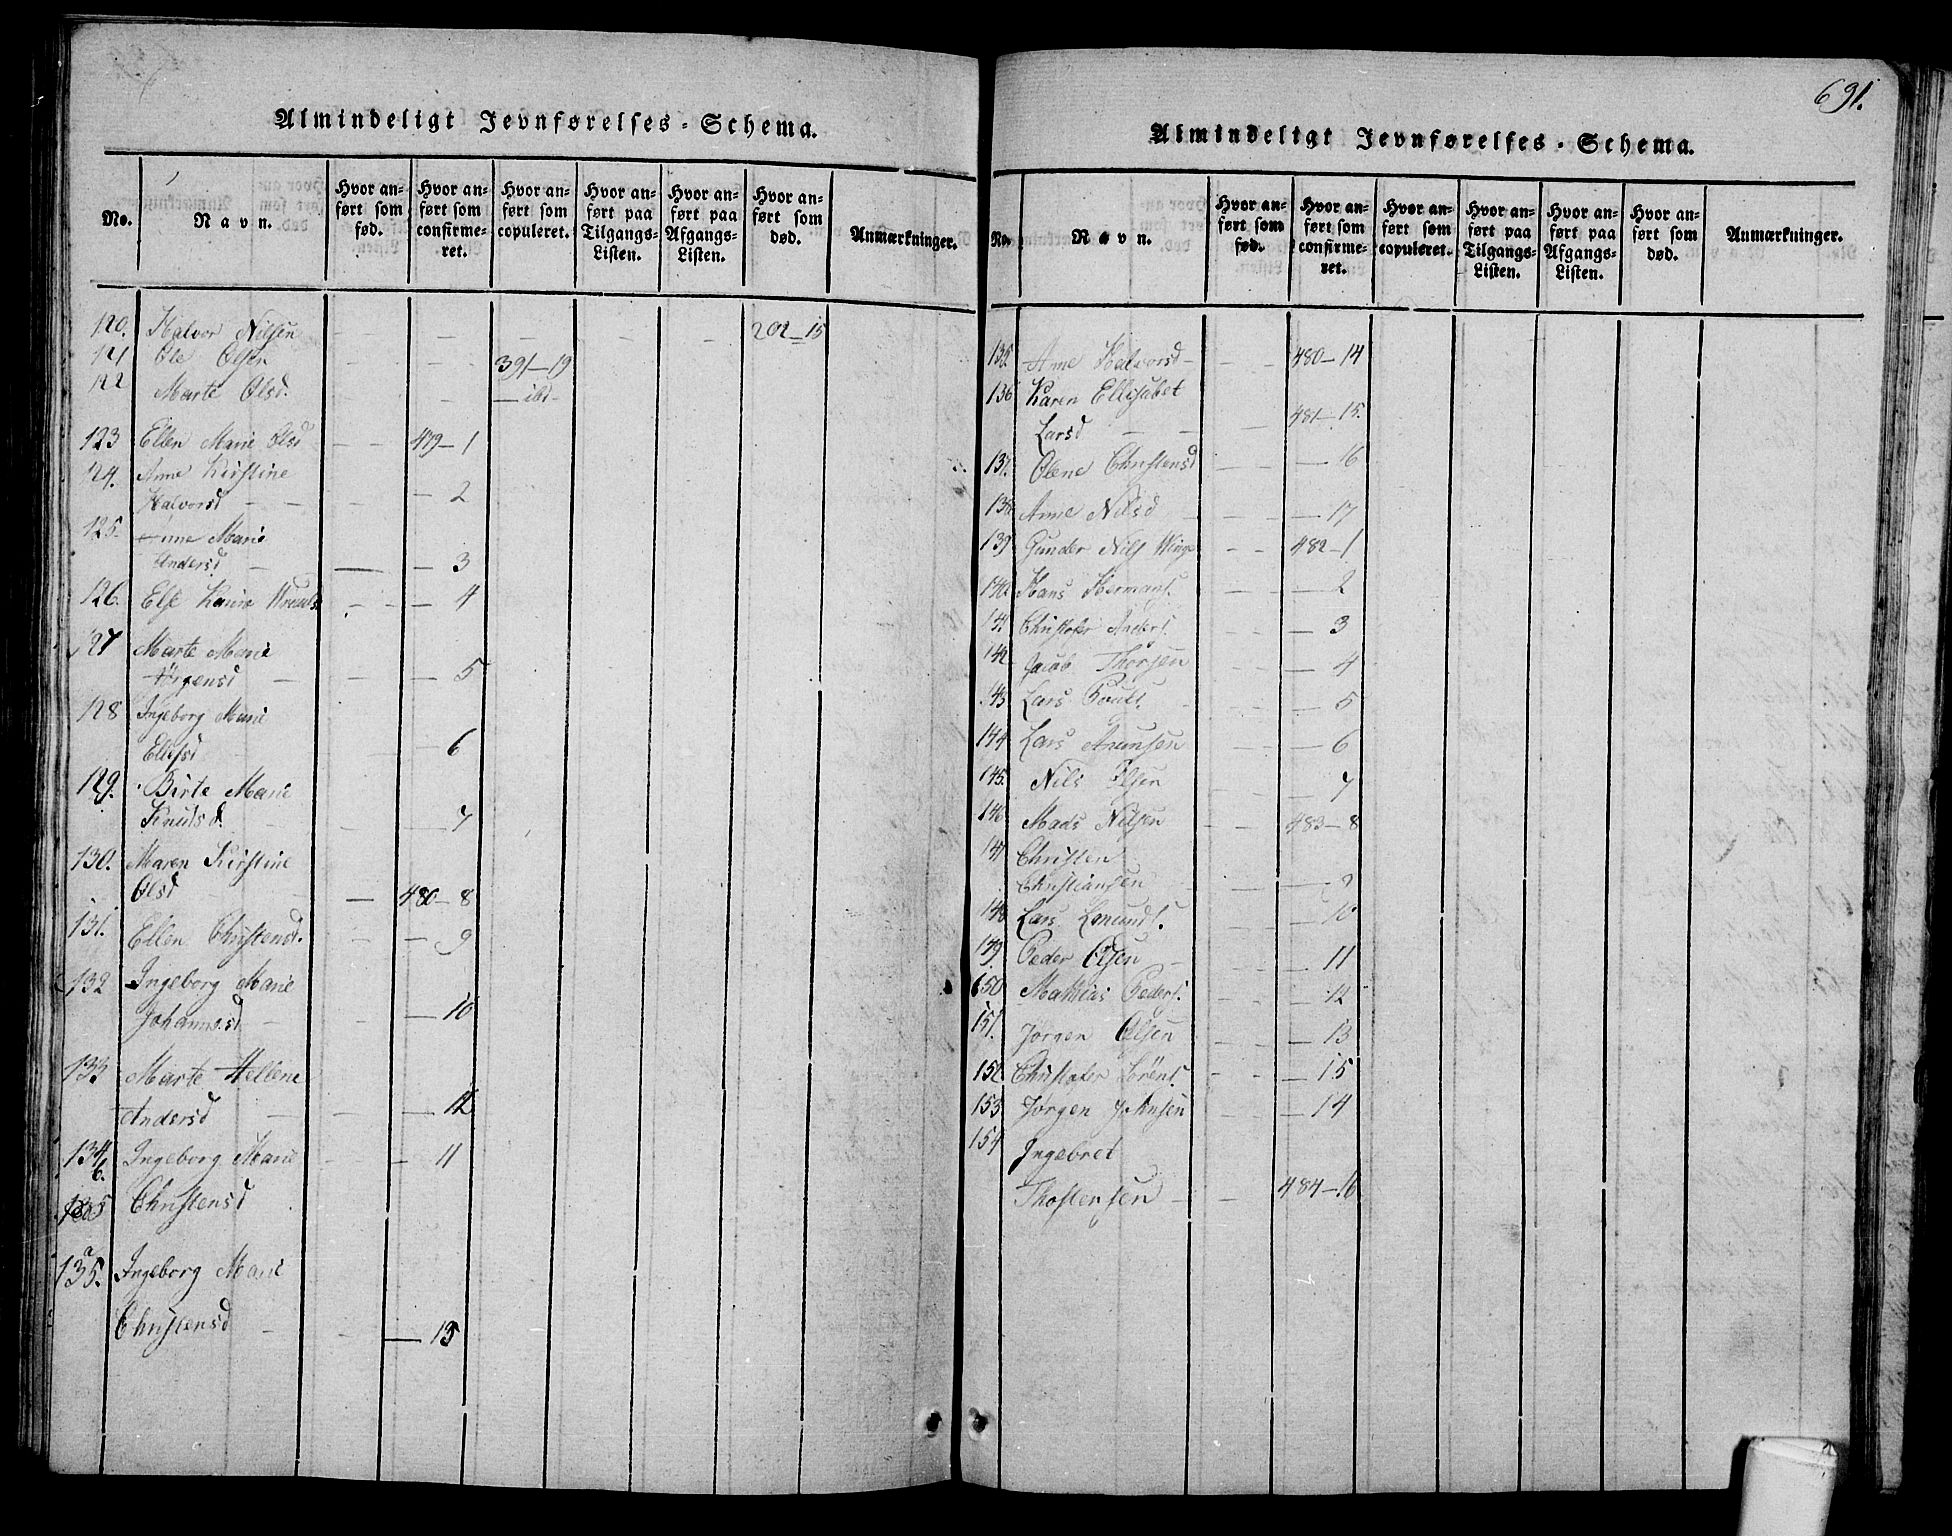 Almindeligt Jevnførelses-Schema.
No.
Navn.
Hvor an-
ført som
fød.
Hvor an-
ført som
confirme-
ret.
Hvor an-
ført som
copuleret.
Hvor an-
ført paa
Tilgangs-
Listen.
Hvor an-
ført paa
Afgangs-
Listen.
Hvor an-
ført som
død.
Anmærkninger.
120. Halvor Nilsen — — — — — — 202—15
121 Ole Olsen — — — 391—19
122 Marte Olsd. — — — ibd—
123 Ellen Marie Olsd — — 479—1
124. Anne Kirstine
Halvorsd — — — 2
125. Anne Marie
Andersd — — — 3
126. Else Karine — — — 4
127 Marte Marie
Jörgensd — — — 5
128 Ingeborg Marie
Ellefsd — 6
129. Birte Marie
Knudsd. — — 7
130. Maren Kirstine
Olsd — 480—8
131. Ellen Christensd. — — — 9
132 Ingeborg Marie
Johannesd — — — 10
133 Marte Hellene
Andersd — — — 12
134 Ingeborg Marie — — 11
b.
135 Christensd
a
135. Ingeborg Marie
Christensd — — — 13
691.
Almindeligt Jevnførelses-Schema.
No.
Navn.
Hvor an-
ført som
fød.
Hvor an-
ført som
confirme-
ret.
Hvor an-
ført som
copuleret.
Hvor an-
ført paa
Tilgangs-
Listen.
Hvor an-
ført paa
Afgangs-
Listen.
Hvor an-
ført som
død.
Anmærkninger.
135. Anne Halvorsd — 480—14
136 Karen Ellisabet
Larsd — — 481—15.
137. Olene Christensd — — — 16
138. Anne Nilsd — — — 17
139 Gunder Nils Winge — — 482—1
140. Hans Hermans. — — — 2
141 Christofer Anders. — — — 3
142 Jacob Thorsen — — — 4
143 Lars Pouls. — — 5
144 Lars Amunsen — — — 6
145. Nils Olsen — — — 7
146. Mads Nilsen — — 483—8
147 Christen
Christiansen — — — 9
148 Lars Lomunds. — — 10
149. Peder Olsen — — — 11
150 Mathias Peders. — — — 12
151. Jörgen Olsen — — — 13
152 Christofer Sörens. — — — 15
153 Jörgen Johnsen — — 14
154 Ingebret
Thostensen — — 484—16